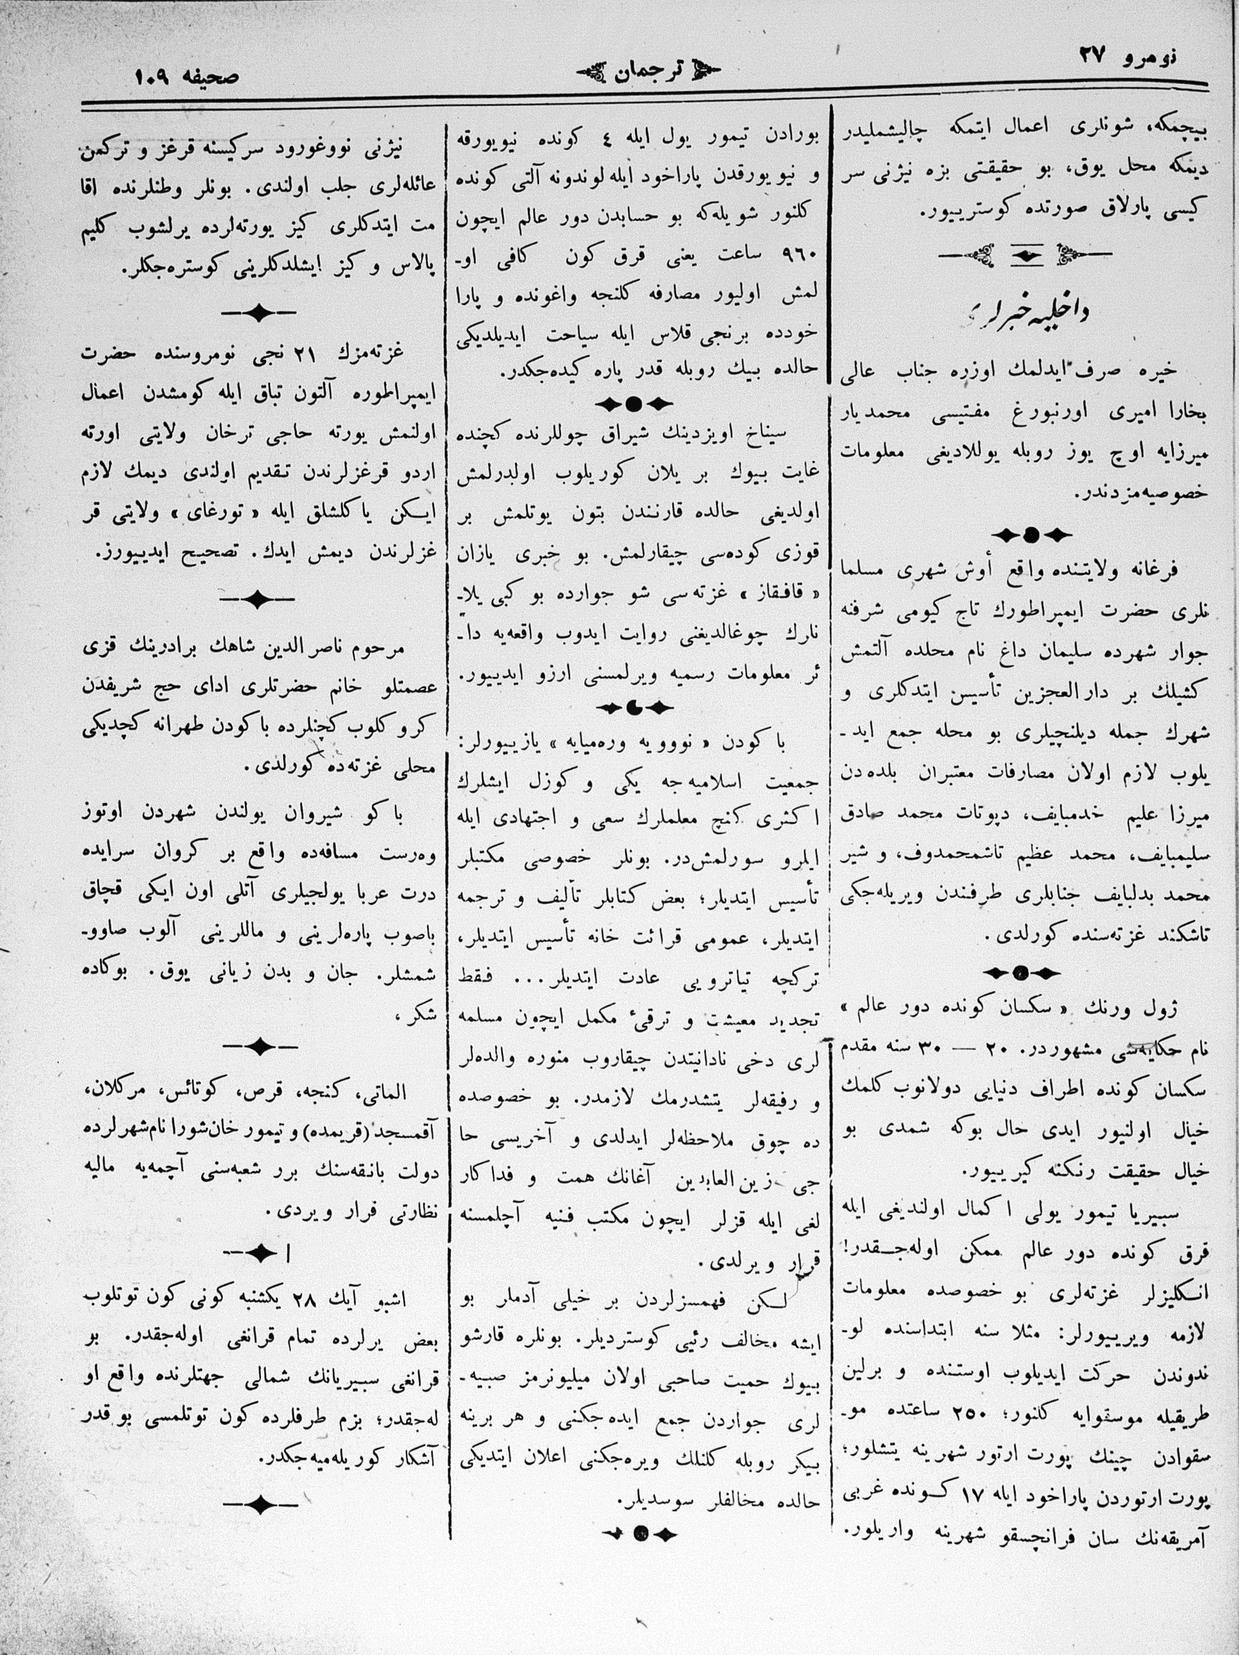 نومرو ٢٧
ترجمان
صحيفه ١٠٩
بيچمكه، شونلرى اعمال ايتمكه چاليشمليدر
ديمكه محل يوق، بو حقيقتى بزه نيژنى سر
كيسى پارلاق صورتده كوسترييور.
داخليه خبرلرى
خيره صرف ايدلمك اوزره جناب عالى
بخارا اميرى اورنبورغ مفتيسى محمديار
ميرزايه اوچ يوز روبله يوللاديغى معلومات
خصوصيه‌مزدندر.
فرغانه ولايتنده واقع أوش شهرى مسلما
نلرى حضرت ايمپراطورك تاج كيومى شرفنه
جوار شهرده سليمان داغ نام محلده آلتمش
كشيلك بر دارالعجزين تأسيس ايتدكلرى و
شهرك جمله ديلنچيلرى بو محله جمع ايد-
يلوب لازم اولان مصارفات معتبران بلده‌دن
ميرزا عليم خدمبايف، دپوتات محمد صادق
سليمبايف، محمد عظيم تاشمحمدوف، و شير
محمد بدلبايف جنابلرى طرفندن ويريله‌جكى
تاشكند غزته‌سنده كورلدى.
ژول ورنك «سكسان كونده دور عالم»
نام حكايه‌سى مشهوردر. ٢٠ — ٣٠ سنه مقدم
سكسان كونده اطراف دنيايى دولانوب كلمك
خيال اولنيور ايدى حال بوكه شمدى بو
خيال حقيقت رنكنه كيرييور.
سبيريا تيمور يولى اكمال اولنديغى ايله
قرق كونده دور عالم ممكن اوله‌جقدر!
انكليزلر غزته‌لرى بو خصوصده معلومات
لازمه ويرييورلر: مثلا سنه ابتداسنده لو-
ندوندن حركت ايديلوب اوستنده و برلين
طريقيله موسقوايه كلنور؛ ٢٥٠ ساعتده مو-
سقوادن چينك پورت ارتور شهرينه يتشلور؛
پورت ارتوردن پاراخود ايله ١٧ كونده غربى
آمريقه‌نك سان فرانچسقو شهرينه واريلور.
بورادن تيمور يول ايله ٤ كونده نيويورقه
و نيويورقدن پاراخود ايله لوندونه آلتى كونده
كلنور شويله‌كه بو حسابدن دور عالم ايچون
٩٦٠ ساعت يعنى قرق كون كافى او-
لمش اوليور مصارفه كلنجه واغونده و پارا
خودده برنجى قلاس ايله سياحت ايديلديكى
حالده بيك روبله قدر پاره كيده‌جكدر.
سيناخ اويزدينك شيراق چوللرنده كچنده
غايت بيوك بر يلان كوريلوب اولدرلمش
اولديغى حالده قارنندن بتون يوتلمش بر
قوزى كوده‌سى چيقارلمش. بو خبرى يازان
«قافقاز» غزته‌سى شو جوارده بو كبى يلا-
نلرك چوغالديغنى روايت ايدوب واقعه‌يه دا-
ئر معلومات رسميه ويرلمسنى ارزو ايدييور.
باكودن «نوويه وره‌ميايه» يازييورلر:
جمعيت اسلاميه‌جه يكى و كوزل ايشلرك
اكثرى كنچ معلملرك سعى و اجتهادى ايله
ايلرو سورلمش‌در. بونلر خصوصى مكتبلر
تأسيس ايتديلر؛ بعض كتابلر تأليف و ترجمه
ايتديلر، عمومى قرائت خانه تأسيس ايتديلر،
تركچه تياترويى عادت ايتديلر... فقط
تجديد معيشت و ترقئ مكمل ايچون مسلمه
لرى دخى نادانيتدن چيقاروب منوره والده‌لر
و رفيقه‌لر يتشدرمك لازمدر. بو خصوصده
ده چوق ملاحظه‌لر ايدلدى و آخريسى حا
جى زين‌العابدين آغانك همت و فداكار
لغى ايله قزلر ايچون مكتب فنيه آچلمسنه
قرار ويرلدى.
لكن فهمسزلردن بر خيلى آدملر بو
ايشه مخالف رئيى كوسترديلر. بونلره قارشو
بيوك حميت صاحبى اولان ميليونرمز صبيه-
لرى جواردن جمع ايده‌جكنى و هر برينه
بيكر روبله كلنلك ويره‌جكنى اعلان ايتديكى
حالده مخالفلر سوسديلر.
نيژنى نووغورود سركيسنه قرغز و تركمن
عائله‌لرى جلب اولندى. بونلر وطنلرنده اقا
مت ايتدكلرى كيز يورته‌لرده يرلشوب كليم
پالاس و كيز ايشلدكلرينى كوستره‌جكلر.
غزته‌مزك ٢١ نجى نومروسنده حضرت
ايمپراطوره آلتون تباق ايله كومشدن اعمال
اولنمش يورته حاجى ترخان ولايتى اورته
اردو قرغزلرندن تقديم اولندى ديمك لازم
ايكن ياكلشلق ايله «تورغاى» ولايتى قر
غزلرندن ديمش ايدك. تصحيح ايدييورز.
مرحوم ناصرالدين شاهك برادرينك قزى
عصمتلو خانم حضرتلرى اداى حج شريفدن
كرو كلوب كچنلرده باكودن طهرانه كچديكى
محلى غزته‌ده كورلدى.
باكو شيروان يولندن شهردن اوتوز
وه‌رست مسافه‌ده واقع بر كروان سرايده
درت عربا يولجيلرى آتلى اون ايكى قچاق
باصوب پاره‌لرينى و ماللرينى آلوب صاوو-
شمشلر. جان و بدن زيانى يوق. بوكاده
شكر،
الماتى، كنجه، قرص، كوتائس، مركلان،
آقمسجد (قريمده) و تيمور خان‌شورا نام‌شهرلرده
دولت بانقه‌سنك برر شعبه‌سنى آچمه‌يه ماليه
نظارتى قرار ويردى.
اشبو آيك ٢٨ يكشنبه كونى كون توتلوب
بعض يرلرده تمام قرانغى اوله‌جقدر. بو
قرانغى سبيريانك شمالى جهتلرنده واقع او
له‌جقدر؛ بزم طرفلرده كون توتلمسى بو قدر
آشكار كوريله‌ميه‌جكدر.